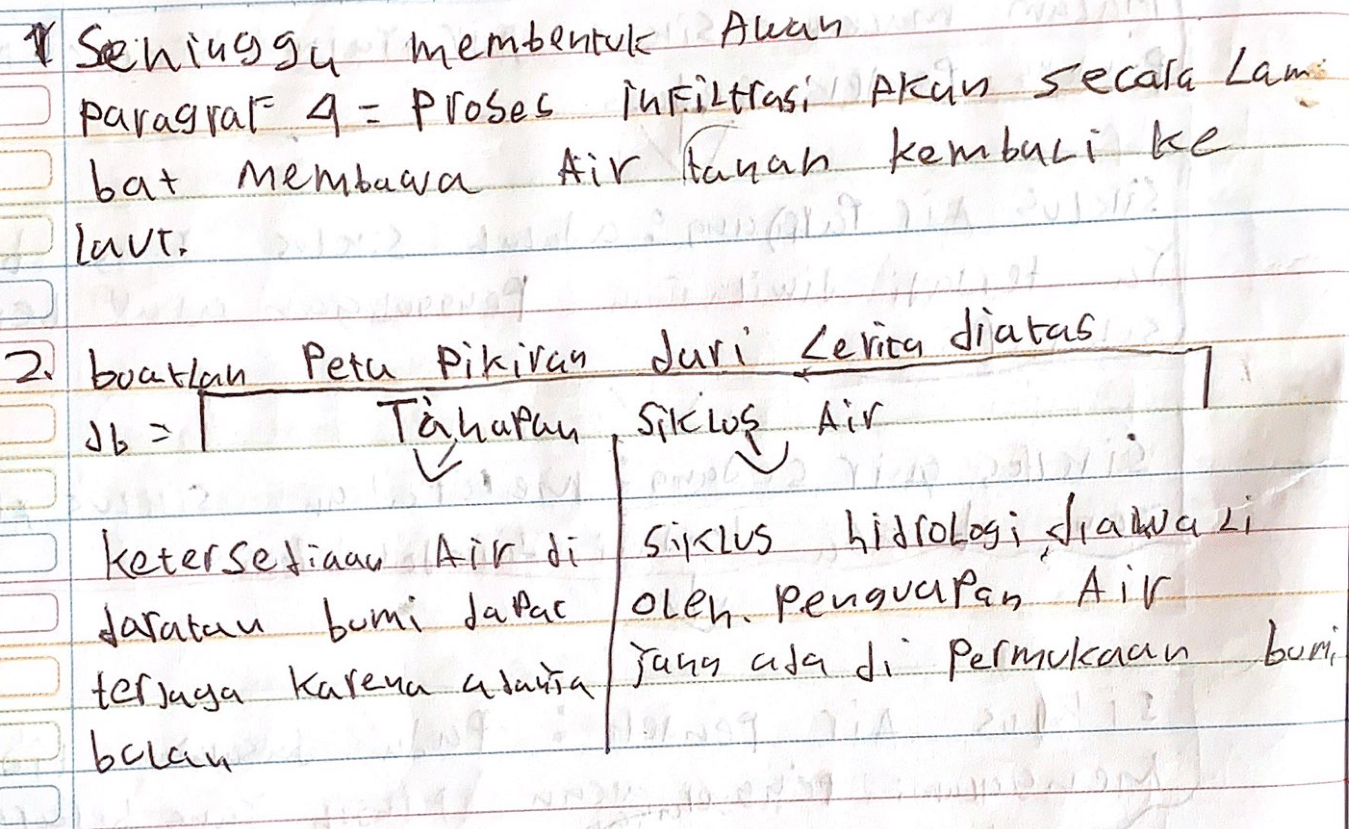 Sehingga membentuk Awan
paragraf 4 = Proses infiltrasi Akan secara Lam
bat Membawa Air tanah kembali ke
laut.
2. buatlah Peta Pikiran dari Cerita diatas
Jb = Tahapan Siklus Air
ketersediaan Air di
daratan bumi dapat
terjaga karena adania
bulan
Siklus hidrologi diawali
oleh. penguapan Air
yang ada di Permukaan bumi